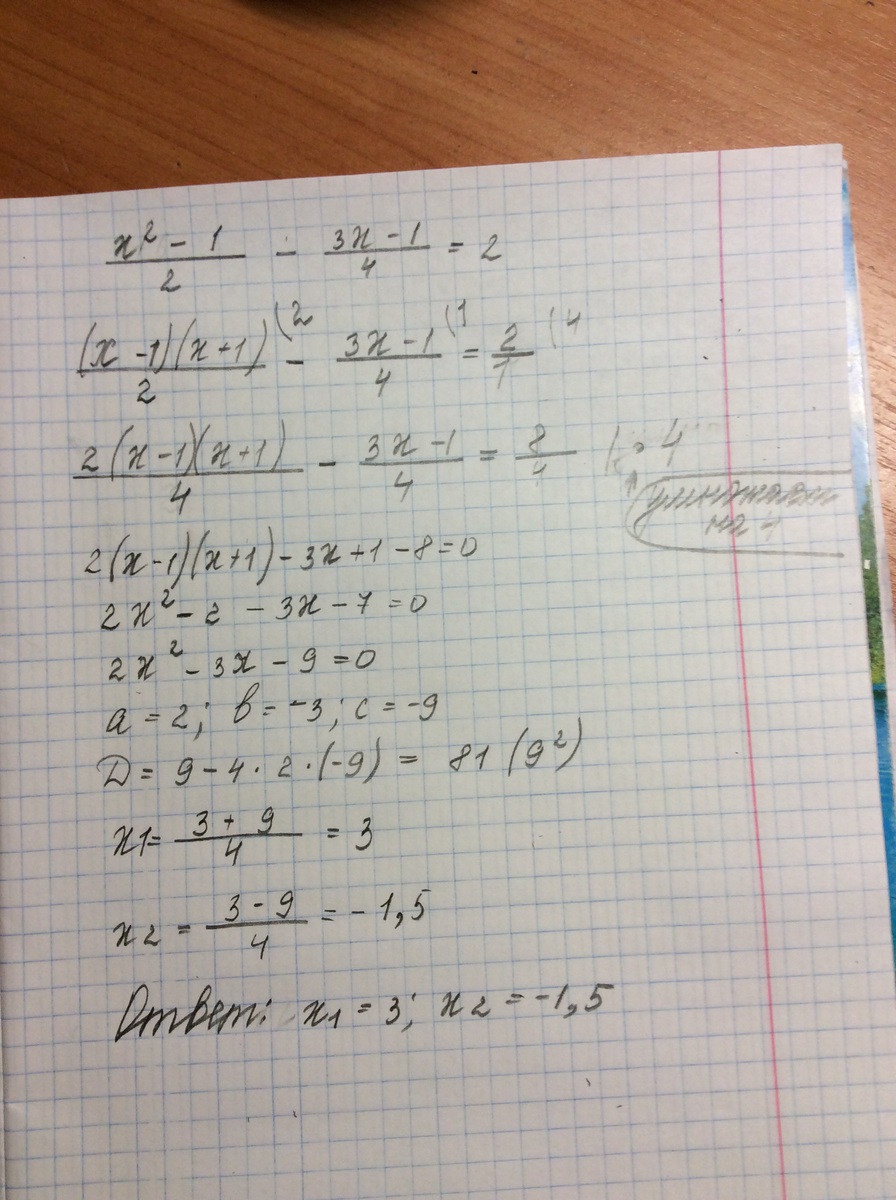 x² - 1 / 2 - 3x - 1 / 4 = 2
(x - 1)(x + 1) / 2 (2 - 3x - 1 / 4 (1 = 2 / 1 (4
2(x - 1)(x + 1) / 4 - 3x - 1 / 4 = 8 / 4 | · 4
умножаем
на 4
2(x - 1)(x + 1) - 3x + 1 - 8 = 0
2x² - 2 - 3x - 7 = 0
2x² - 3x - 9 = 0
a = 2; b = -3; c = -9
D = 9 - 4 · 2 · (-9) = 81 (9²)
x1 = 3 + 9 / 4 = 3
x2 = 3 - 9 / 4 = -1,5
Ответ: x1 = 3; x2 = -1,5